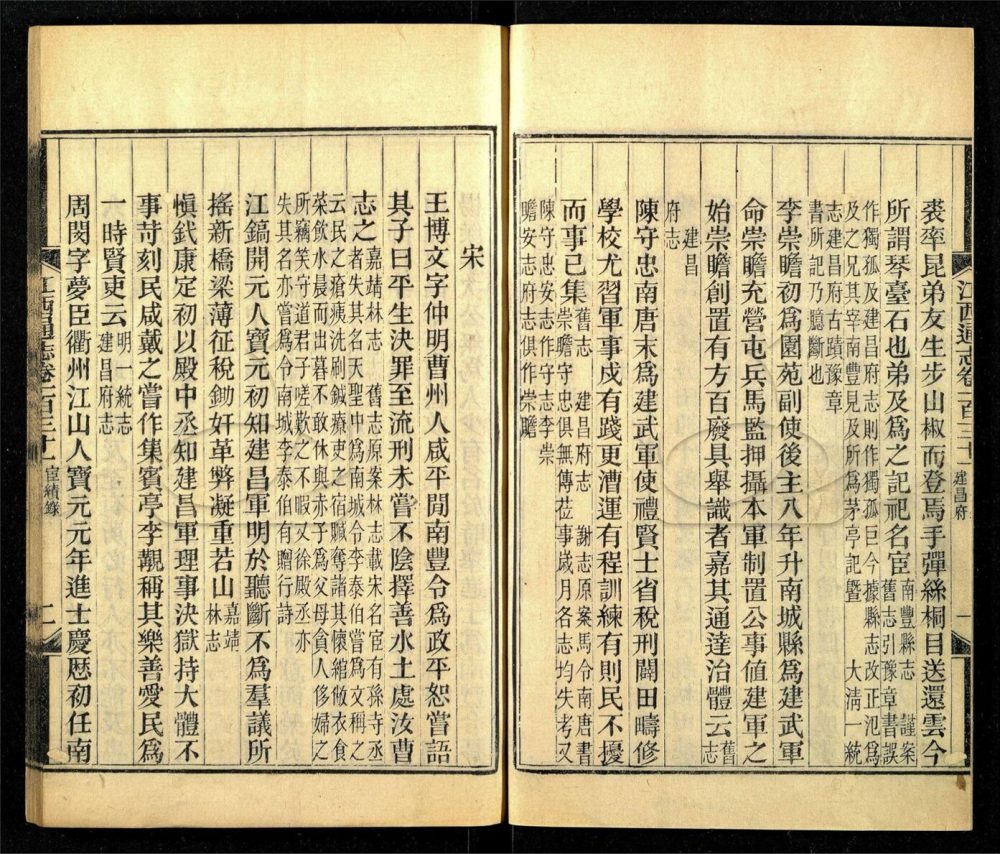 裘率昆弟友生步山椒而登焉手彈絲桐目送還雲今
所謂琴臺石也弟及爲之記祀名宦南豐縣志 謹案
舊志引豫章書誤
作獨孤及建昌府志則作獨孤巨今據縣志改正汜爲
及之兄其宰南豐見及所爲茅亭記曁 大淸一統
志建昌府古蹟豫章
書所記乃臆斷也
李崇瞻初爲園苑副使後主八年升南城縣爲建武軍
命崇瞻充營屯兵馬監押攝本軍制置公事値建軍之
始崇瞻創置有方百廢具舉識者嘉其通達治體云舊
志
建昌
府志
陳守忠南唐末爲建武軍使禮賢士省稅刑闢田疇修
學校尤習軍事戍有踐更漕運有程訓練有則民不擾
而事已集舊志 建昌府志 謝志原案馬令南唐書
崇瞻守忠俱無傳莅事歲月各志均失考又
陳守忠安志作守志李崇
瞻安志府志俱作崇贍
江西通志卷一百三十 建昌府 一
宋
王博文字仲明曹州人咸平閒南豐令爲政平恕嘗語
其子曰平生決罪至流刑未嘗不陰擇善水土處汝曹
志之嘉靖林志 舊志原案林志載宋名宦有孫寺丞
者失其名天聖中爲南城令李泰伯嘗爲文稱之
云民之瘡痍洗刷鍼療吏之宿贓奪諸其懷綰敝衣食
菜飲水晨而出暮不敢休與赤子爲父母貪人侈婦之
所竊笑守道君子嗟歎之不暇又徐殿丞亦
失其名亦嘗令南城李泰伯有贈行詩
江鎬開元人寶元初知建昌軍明於聽斷不爲羣議所
搖新橋梁薄征稅鋤奸革弊凝重若山嘉靖
林志
愼釴康定初以殿中丞知建昌軍理事決獄持大體不
事苛刻民咸戴之嘗作集賓亭李覯稱其樂善愛民爲
一時賢吏云明一統志
建昌府志
周閔字夢臣衢州江山人寶元元年進士慶厯初任南
江西通志卷一百三十 宦績錄 二